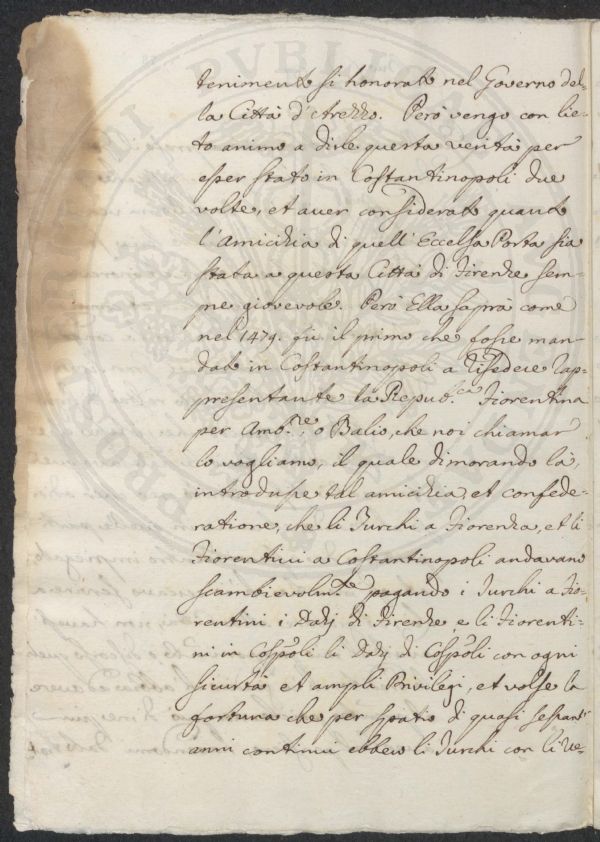 tenimento si honorato nel Governo del=
la Città d'Arezzo. Però vengo con lie=
to animo a dirle questa verità per
esser stato in Costantinopoli due
volte, et aver considerato quanto
l'Amicizia di quell'Eccelsa Porta sia
stata a questa Città di Firenze sem=
pre giovevole. Però Ella saprà come
nel 1479. fù il primo che fosse man=
dato in Costantinopoli a risedere Rap=
presentante la Repub.ca Fiorentina
per Amb.re, o Balio, che noi chiamar
lo vogliamo, il quale dimorando là,
introdusse tal amicizia, et confede=
ratione, che li Turchi a Fiorenza, et li
Fiorentini a Costantinopoli andavano
scambievolm.te pagando i Turchi a Fio=
rentini i Dazj di Firenze e li Fiorenti=
ni in Cospoli li Dazj di Cospoli con ogni
sicurtà et ampli Privilegi, et volse la
fortuna che per spatio di quasi sessant'
anni continui ebbero li Turchi con li Ve=